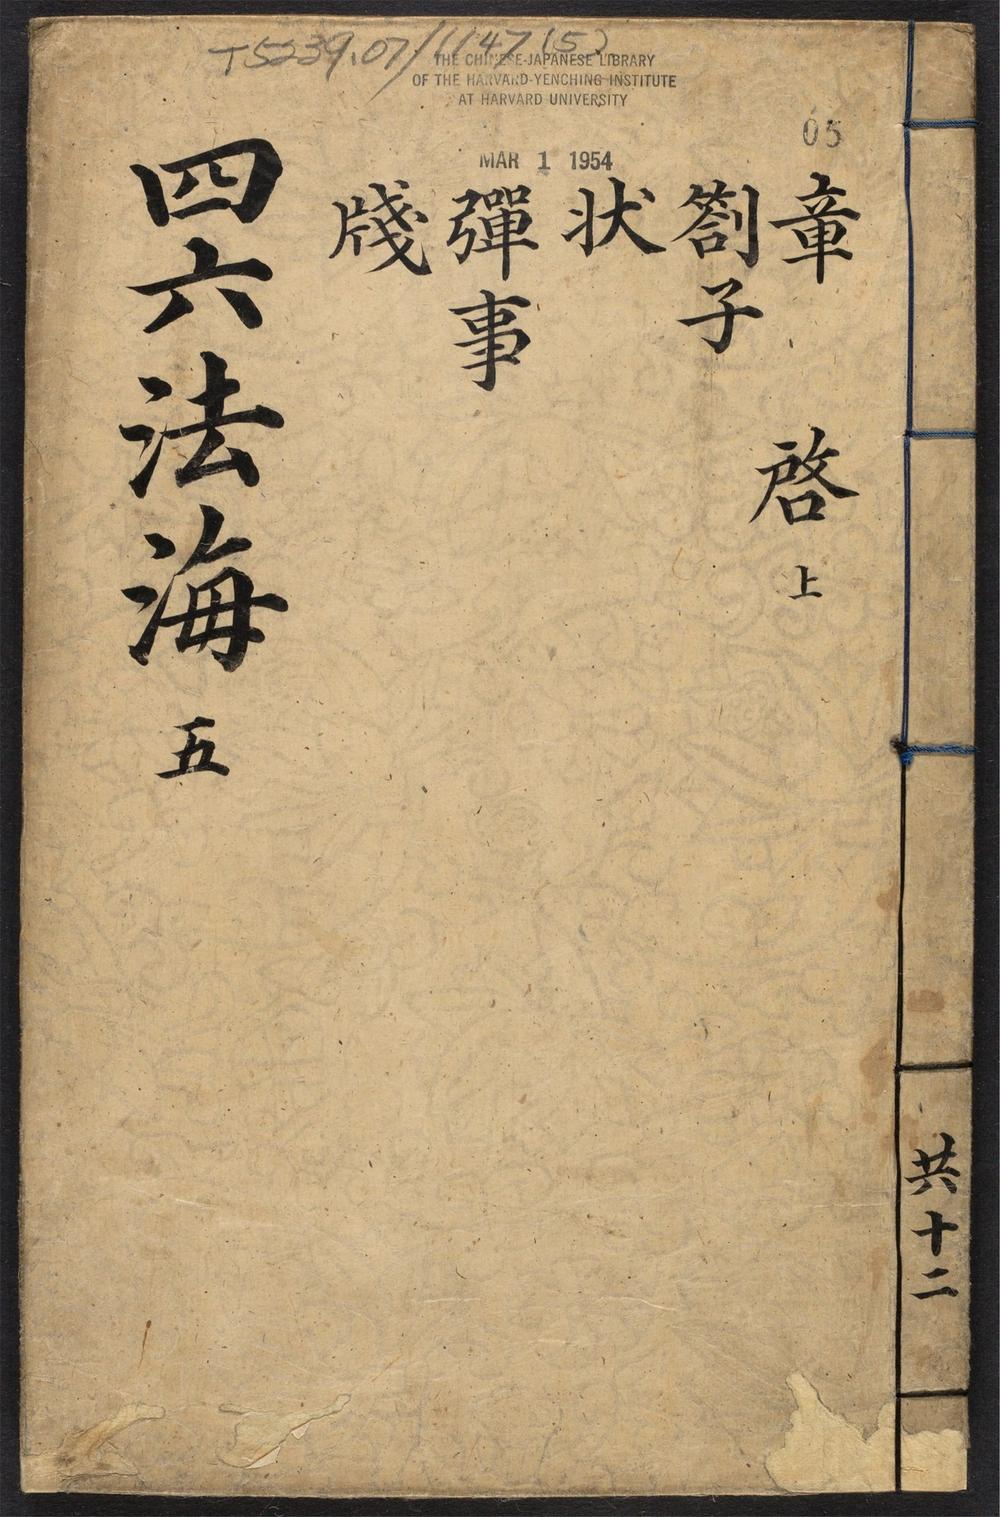 T5239.07/1147 (5)
THE CHINESE-JAPANESE LIBRARY
OF THE HARVARD-YENCHING INSTITUTE
AT HARVARD UNIVERSITY
MAR 1 1954
05
章
劄子
状
彈事
牋
啓上
四六法海 五
共十二